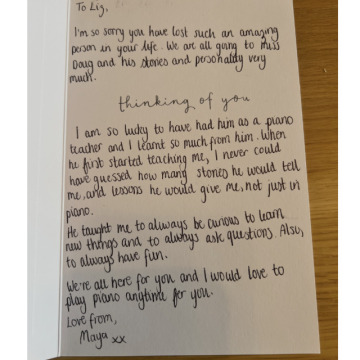 To Liz,
I'm so sorry you have lost such an amazing
person in your life. We are all going to miss
Doug and his stories and personality very
much.
thinking of you
I am so lucky to have had him as a piano
teacher and I learnt so much from him. When
he first started teaching me, I never could
have guessed how many stories he would tell
me, and lessons he would give me, not just in
piano.
He taught me to always be curious to learn
new things and to always ask questions. Also,
to always have fun.
We're all here for you and I would love to
play piano anytime for you.
Love from,
Maya xx